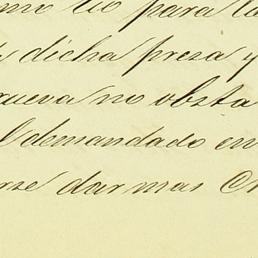 como lo para la
y dicha presa y
nueva no obsta
l demandado en
rse dar mas